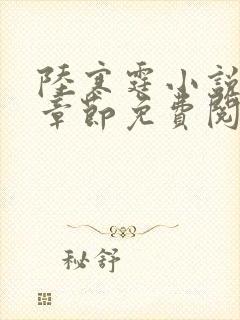 陸寒霆小說
章節免費閱
秘舒